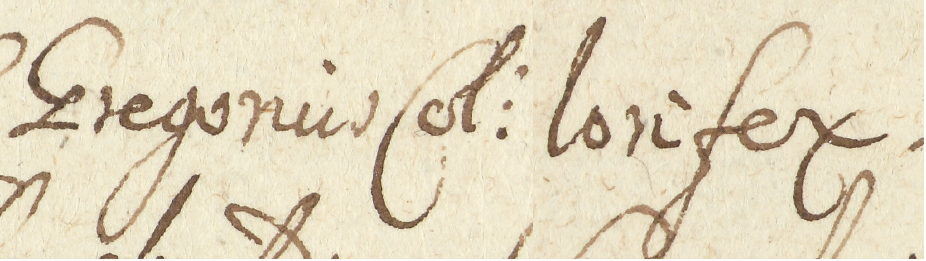 Gregorius Col: lorifex